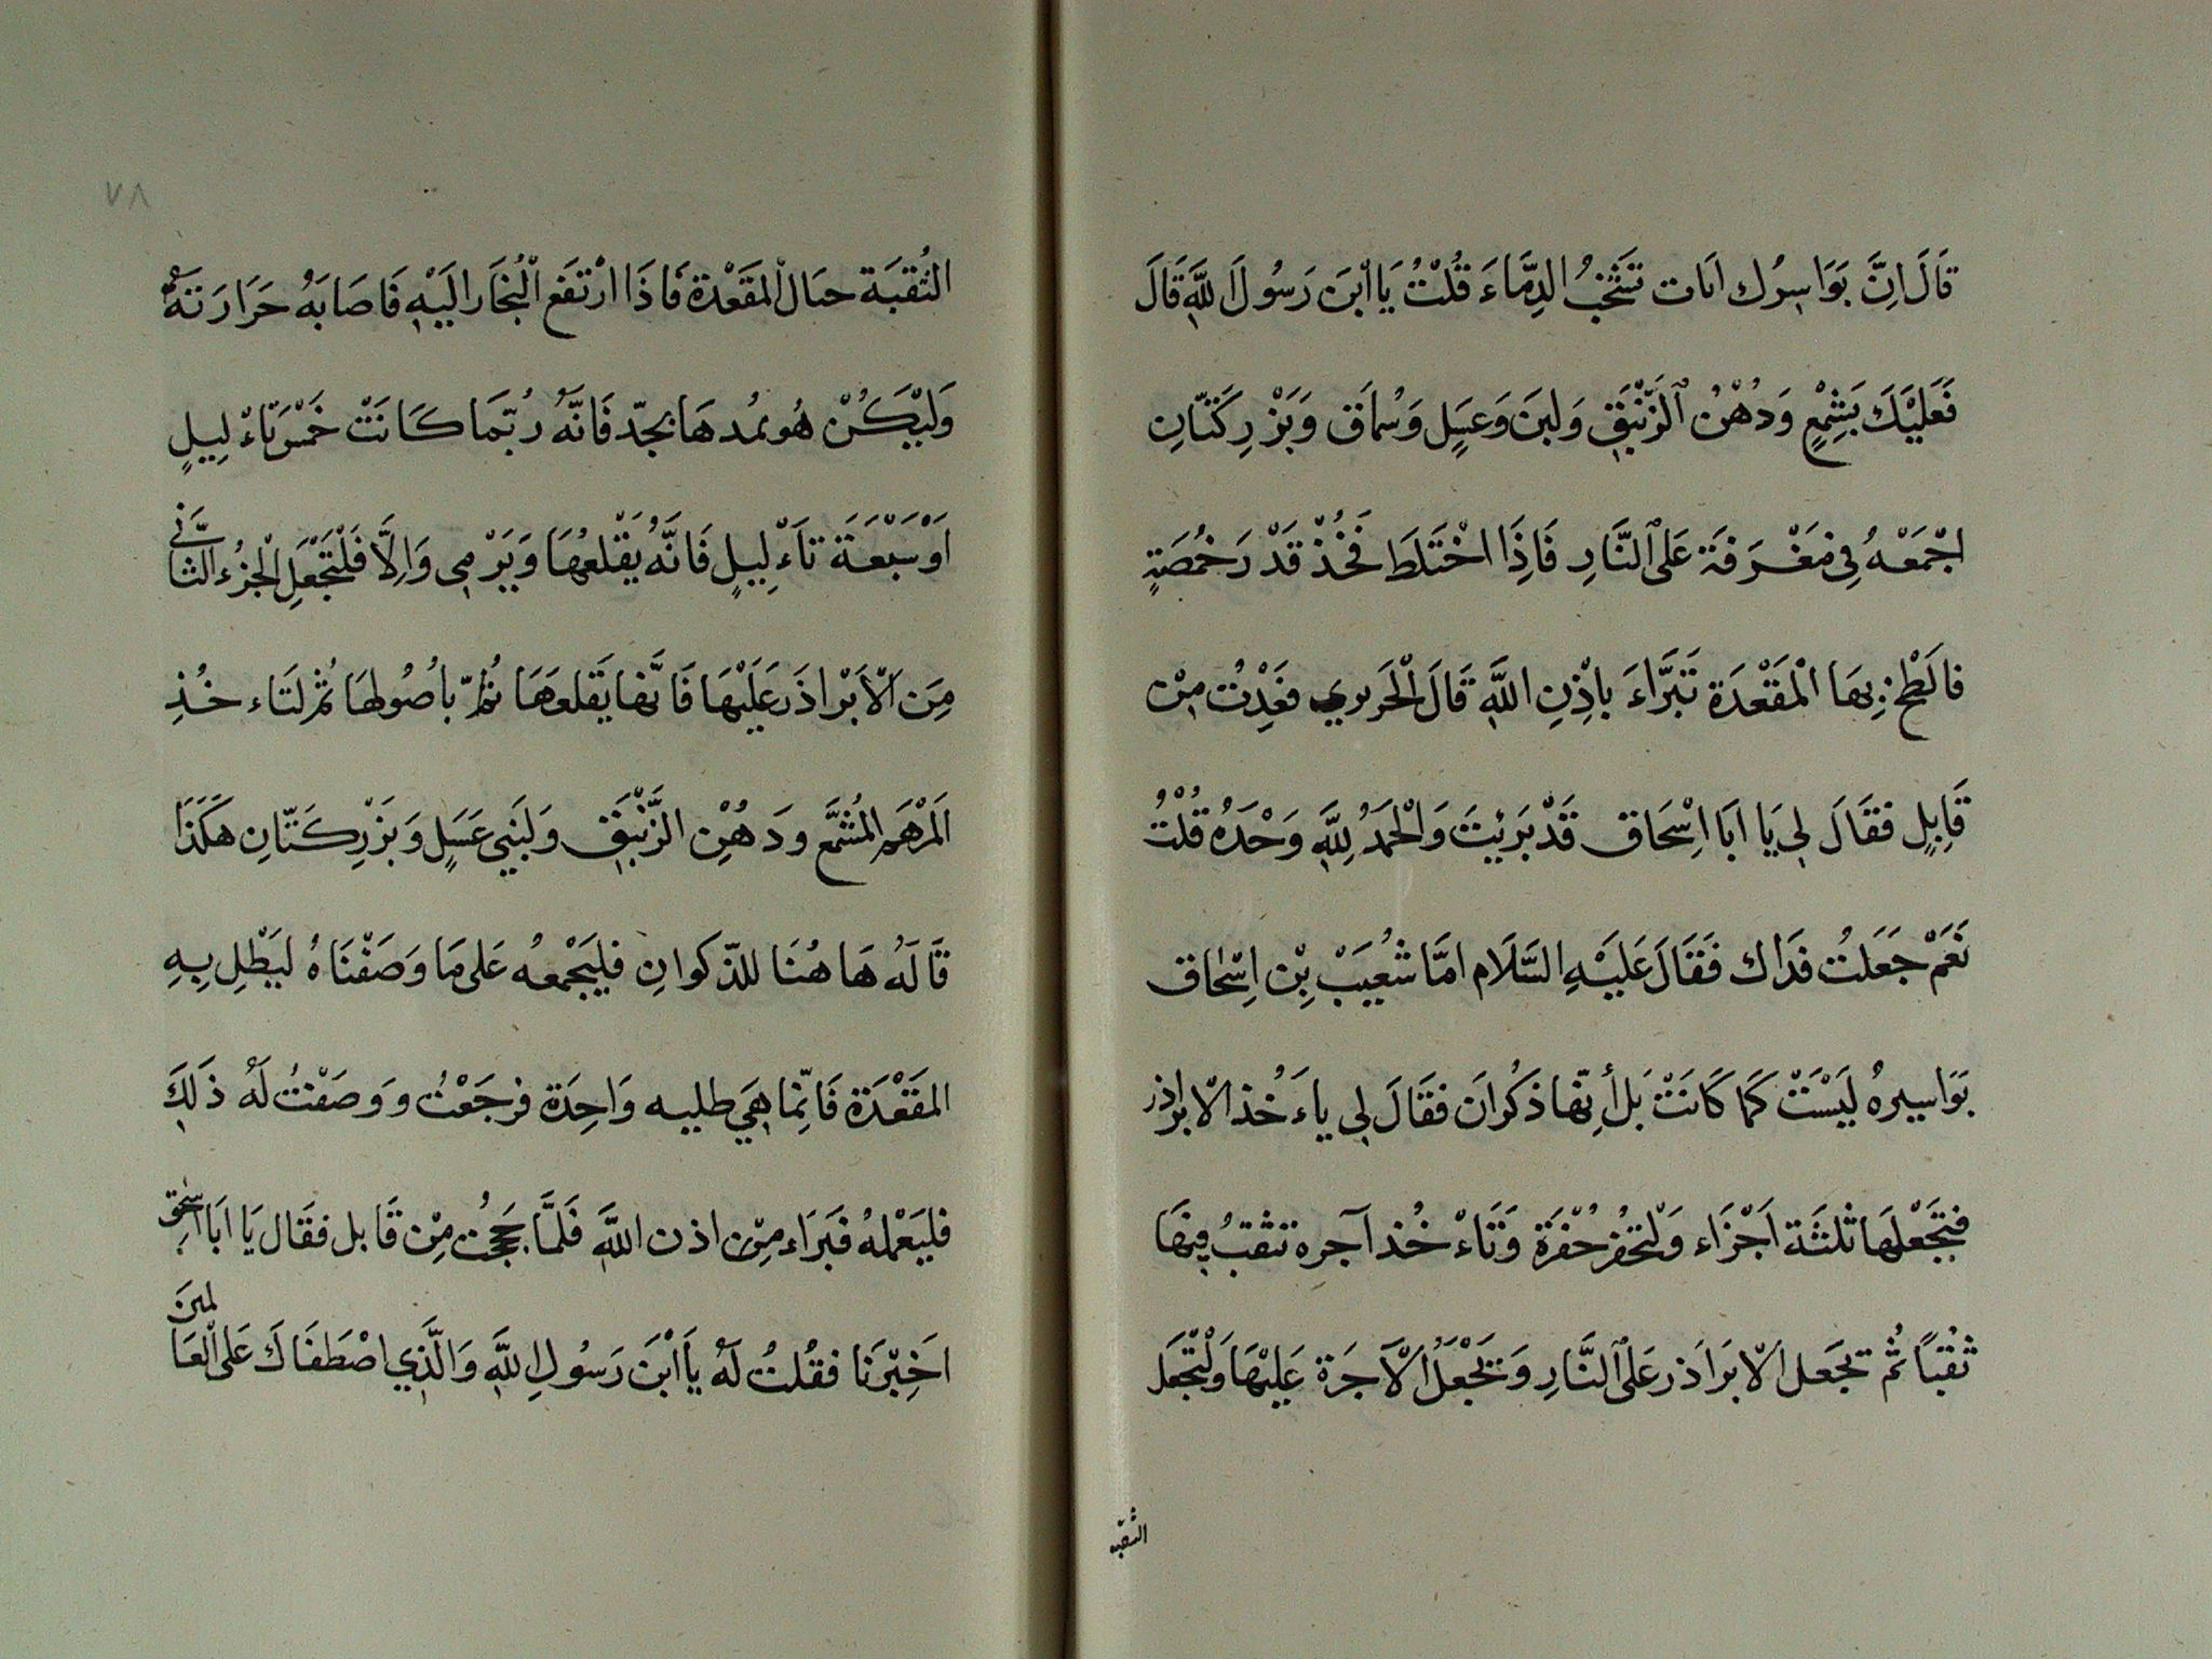 قَالَ اِنَّ بَوَاسِرُك اَنات تَشَخُبُ الدِّمَاءَ قُلْتُ يَا ابْنَ رَسُولَ اللَّهِ قَالَ
فَعَلَيْكَ بَشِمْعٍ وَدُهْنُ الزَّنْبَقِ وَلبَنَ وَعسَلٍ وَسُماَق وَبَزْرِ كَتَّانِ
اجْمَعْهُ فِي مَغْرَفَة عَلَى النَّارِ فَاِذَا اخْتَلَطَ فَخُذْ قَدْرَ خُمصَةٍ
فالَطْخ بِهَا الْمَقْعْدَة تَبَرَّاءَ بِاذِنِ اللَّهِ قَالَ الْحَرِيري فغَدِتُ مِنْ
قَابِلٍ فقَالَ لِي يَا اَبَا اِسْحَاق قَدْ بَرِيتَ وَالْحَمَدُ لِلَّهِ وَحْدَهُ قُلْتُ
نَعَمْ جَعَلتُ فدَاك فقَالَ عَلَيْهِ السَّلَام امَّا شُعِيَبْ بِنْ اِسْحٰاق
بَوَاسيرهُ لَيْسَتْ كَمَا كَانَتْ بَل أِنّها ذكُرانَ فقَالَ لِي ياءَ خُذ الابراذر
فتجَعْلهَا ثلثَة اَجْزَاء وَلْتحُفرْ حُفْرَة وَتَاءْ خُذ آجره تثقبُ فِيهَا
ثقْبًا ثُم تجَعل الابَراَذر عَلَى النَّارِ وَتجَعْلُ الآجَرَة عَلِيْهَا وَلْتَجَعل
الثقبة
٧٨
الثُقبَة حيَال المقَعْدَة فَاذَا ارْتفَع الْبُخَار اليَهِ فَاصَابَهُ حَرَارَتهُ
وَليْكُنْ هُو يمُدهَا بجدّ فَانَّهُ رُبّما كانَتْ خَمْسَ تَاءْ لِيلٍ
اَوْ سَبْعَة تاَءْ لِيلٍ فَانَّهُ يَقْلعهَا وَيَرْمِي وَالِاَّ فَلْتَجْعَلِ الْجزُء الثّاني
مِنَ الْاَبْراذَر عَلَيْهَا فَانّها يَقلعهَا ثُمّ بِاُصُولهَا ثمُ لتَاء خُذِ
اَلمَرْهَم المُشَمَّع ودَهُنِ الزَّنْبقِ وَلبَنِي عَسَلٍ وَبَزْرِ كتَّانِ هكَذَا
قَالَهُ هَا هُنَا للذّكوانِ فليَجْمعهُ عَلى مَا وَصَفْنَاهُ ليَطْلِ بِهِ
المَقَعْدَة فَانّمِا هِيَ طليه وَاحِدَة فرجَعْتُ وَوصَفْتُ لَهُ ذَلِكَ
فليَعْملهُ فبَرَاء مِنْ اذن اللَّهِ فَلَمَّا حَجَجْتُ مِنْ قَابل فقَال يَا اَبَا اسحق
اَخِبْرنَا فقُلتُ لَهُ ياَ ابْنَ رَسُولِ اللَّهِ وَالَّذِي اصْطَفَاكَ عَلى الْعَالمينَ